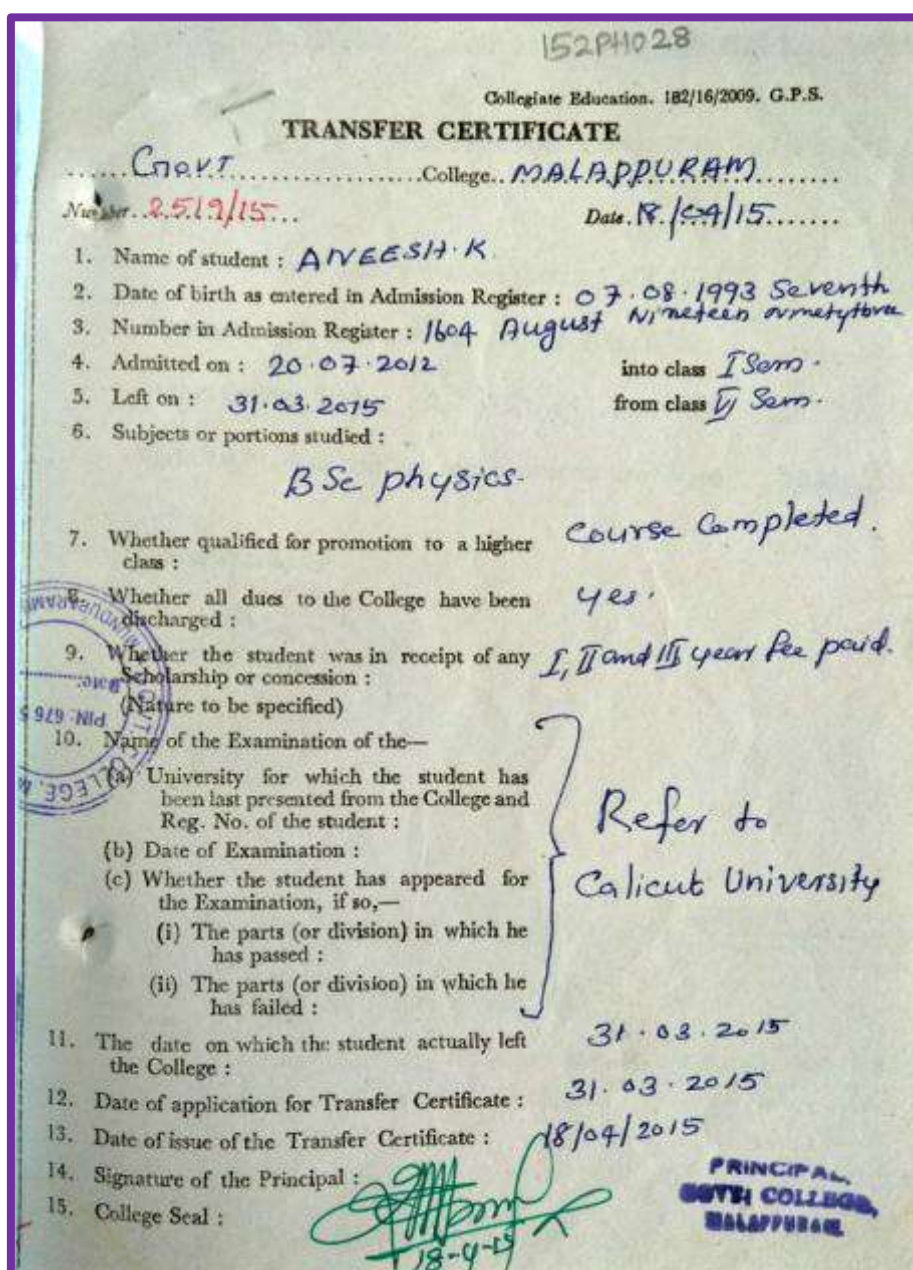 152PH028
Collegiate Education. 182/16/2009. G.P.S.
TRANSFER CERTIFICATE
......Govt....................College..MALAPPURAM........
Number..2519/15... Date.18./04/15.......
1. Name of student : ANEESH.K
2. Date of birth as entered in Admission Register : 07.08.1993 Seventh
August Nineteen
3. Number in Admission Register : 1604
4. Admitted on : 20.07.2012 into class I Sem.
5. Left on : 31.03.2015 from class VI Sem.
6. Subjects or portions studied :
BSc physics.
7. Whether qualified for promotion to a higher class : Course Completed.
8. Whether all dues to the College have been discharged : yes.
9. Whether the student was in receipt of any Scholarship or concession : I, II and III year fee paid.
(Nature to be specified)
10. Name of the Examination of the—
(a) University for which the student has
been last presented from the College and
Reg. No. of the student :
(b) Date of Examination :
(c) Whether the student has appeared for
the Examination, if so,—
(i) The parts (or division) in which he
has passed :
(ii) The parts (or division) in which he
has failed :
Refer to
Calicut University
11. The date on which the student actually left the College : 31.03.2015
12. Date of application for Transfer Certificate : 31.03.2015
13. Date of issue of the Transfer Certificate : 18/04/2015
14. Signature of the Principal :
15. College Seal :
18-4-15
PRINCIPAL,
GOVT: COLLEGE,
MALAPPURAM
GOVT. COLLEGE, M
PIN: 676 5
Date: